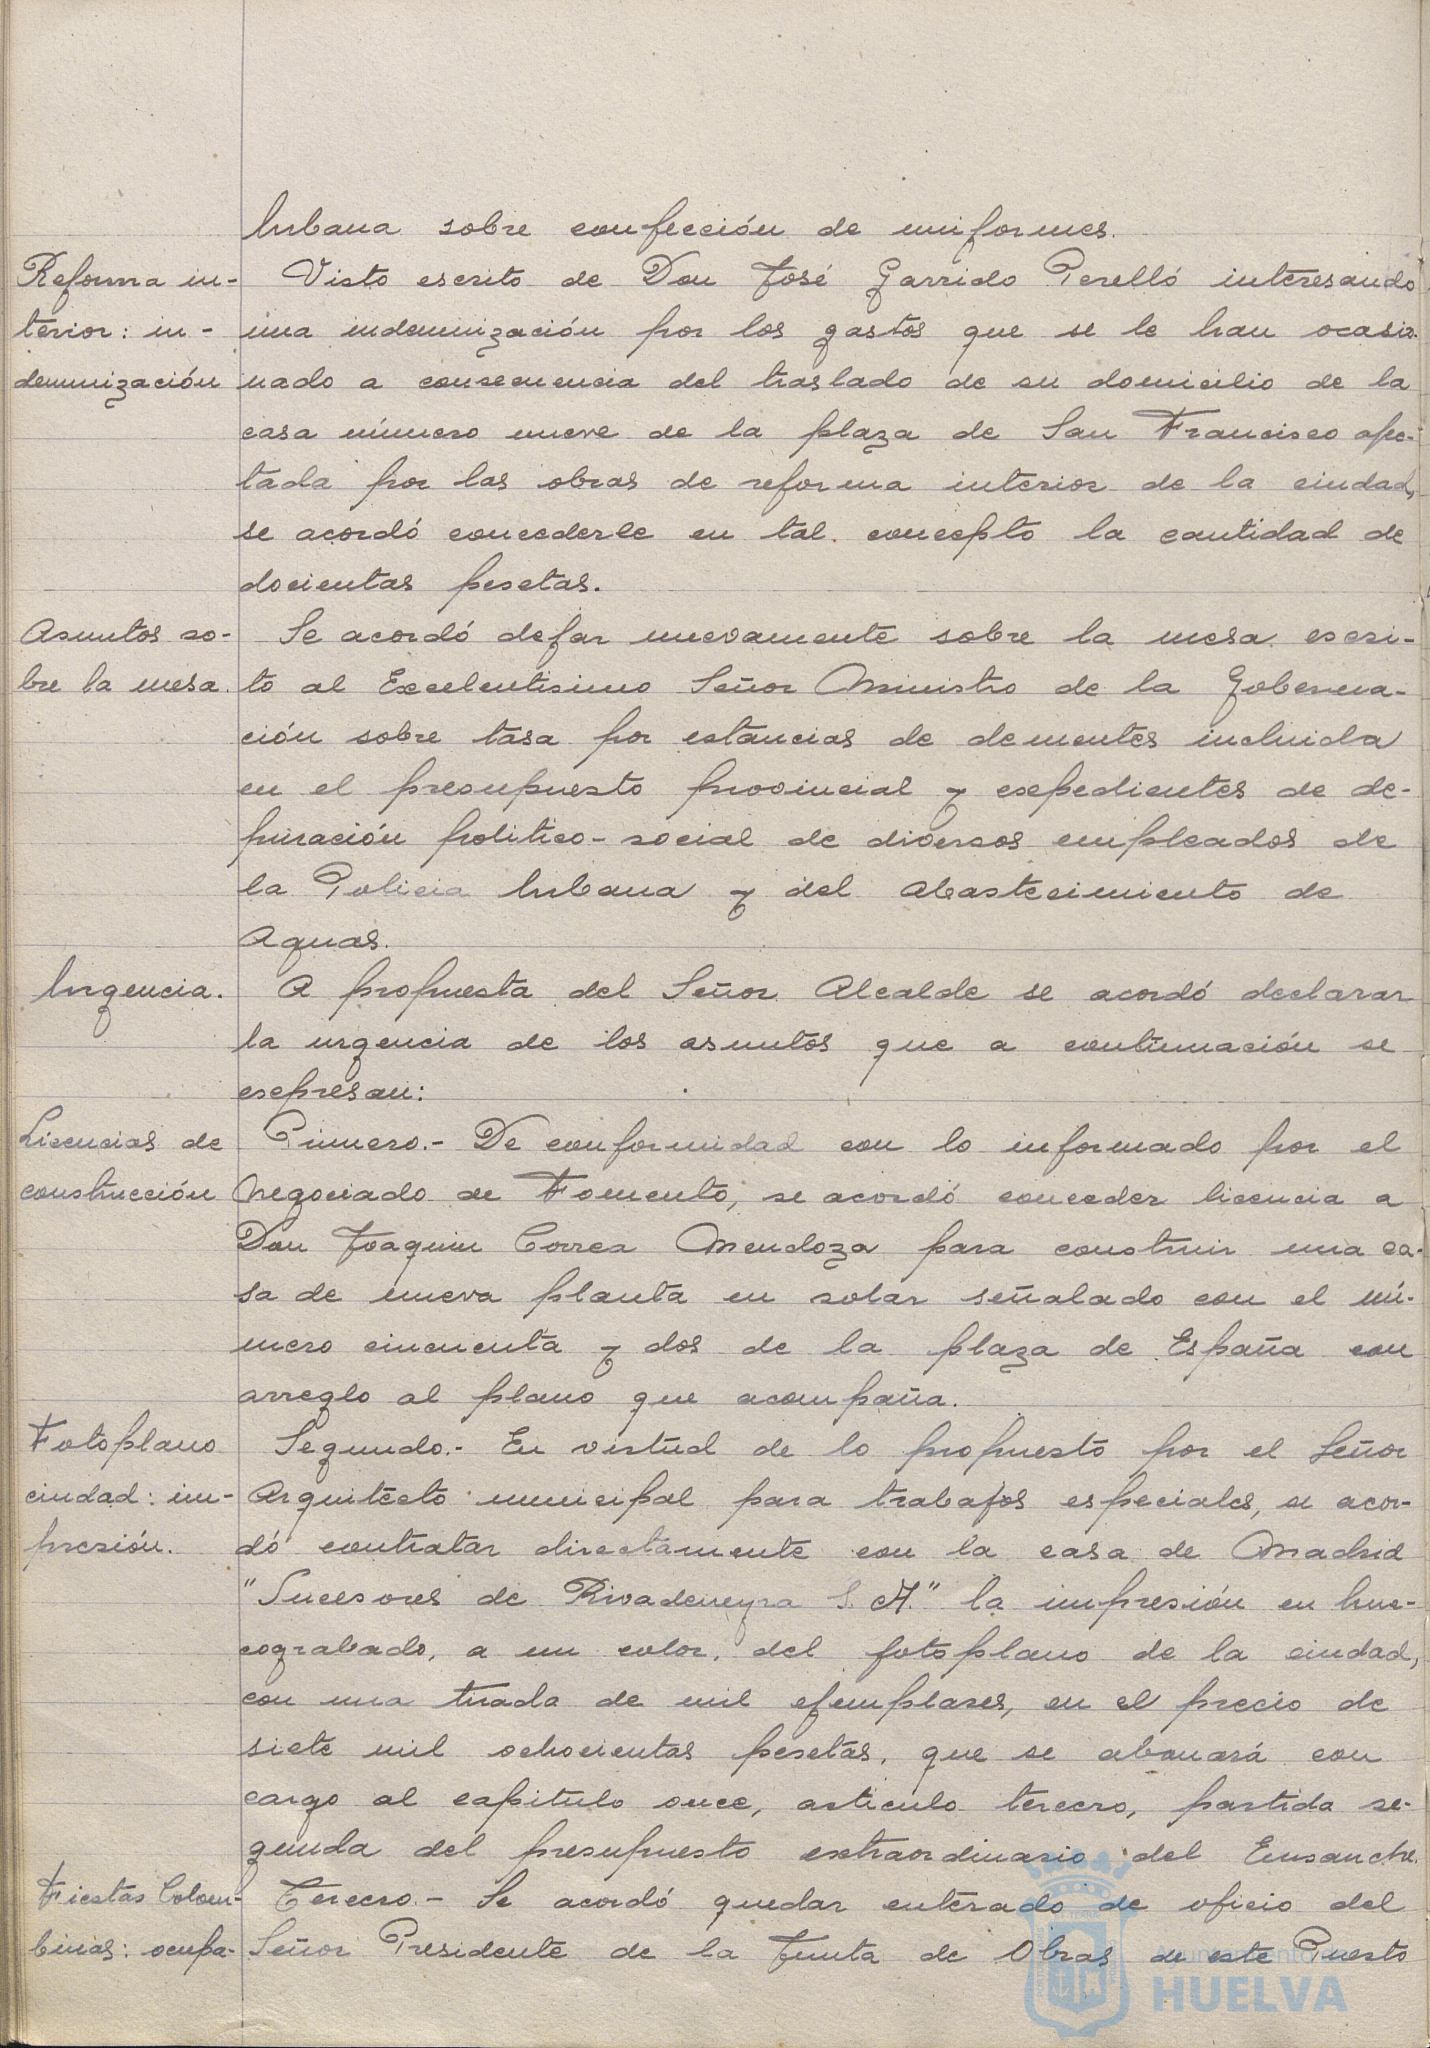 Urbana sobre confección de uniformes.
Reforma in-
terior: in-
demnización
Visto escrito de Don José Garrido Perelló interesando
una indemnización por los gastos que se le han ocasio-
nado a consecuencia del traslado de su domicilio de la
casa número nueve de la plaza de San Francisco afec-
tada por las obras de reforma interior de la ciudad,
se acordó concederle en tal concepto la cantidad de
docientas pesetas.
Asuntos so-
bre la mesa.
Se acordó dejar nuevamente sobre la mesa escri-
to al Excelentísimo Señor Ministro de la Goberna-
ción sobre tasa por estancias de dementes incluida
en el presupuesto provincial y expedientes de de-
puración político-social de diversos empleados de
la Policia Urbana y del Abastecimiento de
Aguas.
Urgencia.
A propuesta del Señor Alcalde se acordó declarar
la urgencia de los asuntos que a continuación se
expresan:
Licencias de
construcción
Primero.- De conformidad con lo informado por el
Negociado de Fomento, se acordó conceder licencia a
Don Joaquin Correa Mendoza para construir una ca-
sa de nueva planta en solar señalado con el nú-
mero cincuenta y dos de la plaza de España con
arreglo al plano que acompaña.
Fotoplano
ciudad: im-
presión.
Segundo.- En virtud de lo propuesto por el Señor
Arquitecto municipal para trabajos especiales, se acor-
dó contratar directamente con la casa de Madrid
"Sucesores de Rivadeneyra S. A." la impresión en hue-
cograbado, a un color, del fotoplano de la ciudad,
con una tirada de mil ejemplares, en el precio de
siete mil ochocientas pesetas, que se abonará con
cargo al capitulo once, articulo tercero, partida se-
gunda del presupuesto extraordinario del Ensanche.
Fiestas Colom-
binas: ocupa-
Tercero.- Se acordó quedar enterado de oficio del
Señor Presidente de la Junta de Obras de este Puerto
Ayuntamiento de
HUELVA